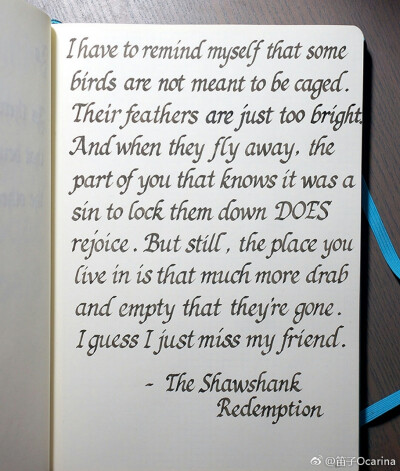 I have to remind myself that some
birds are not meant to be caged.
Their feathers are just too bright.
And when they fly away, the
part of you that knows it was a
sin to lock them down DOES
rejoice. But still, the place you
live in is that much more drab
and empty that they're gone.
I guess I just miss my friend.
- The Shawshank
Redemption
@笛子Ocarina